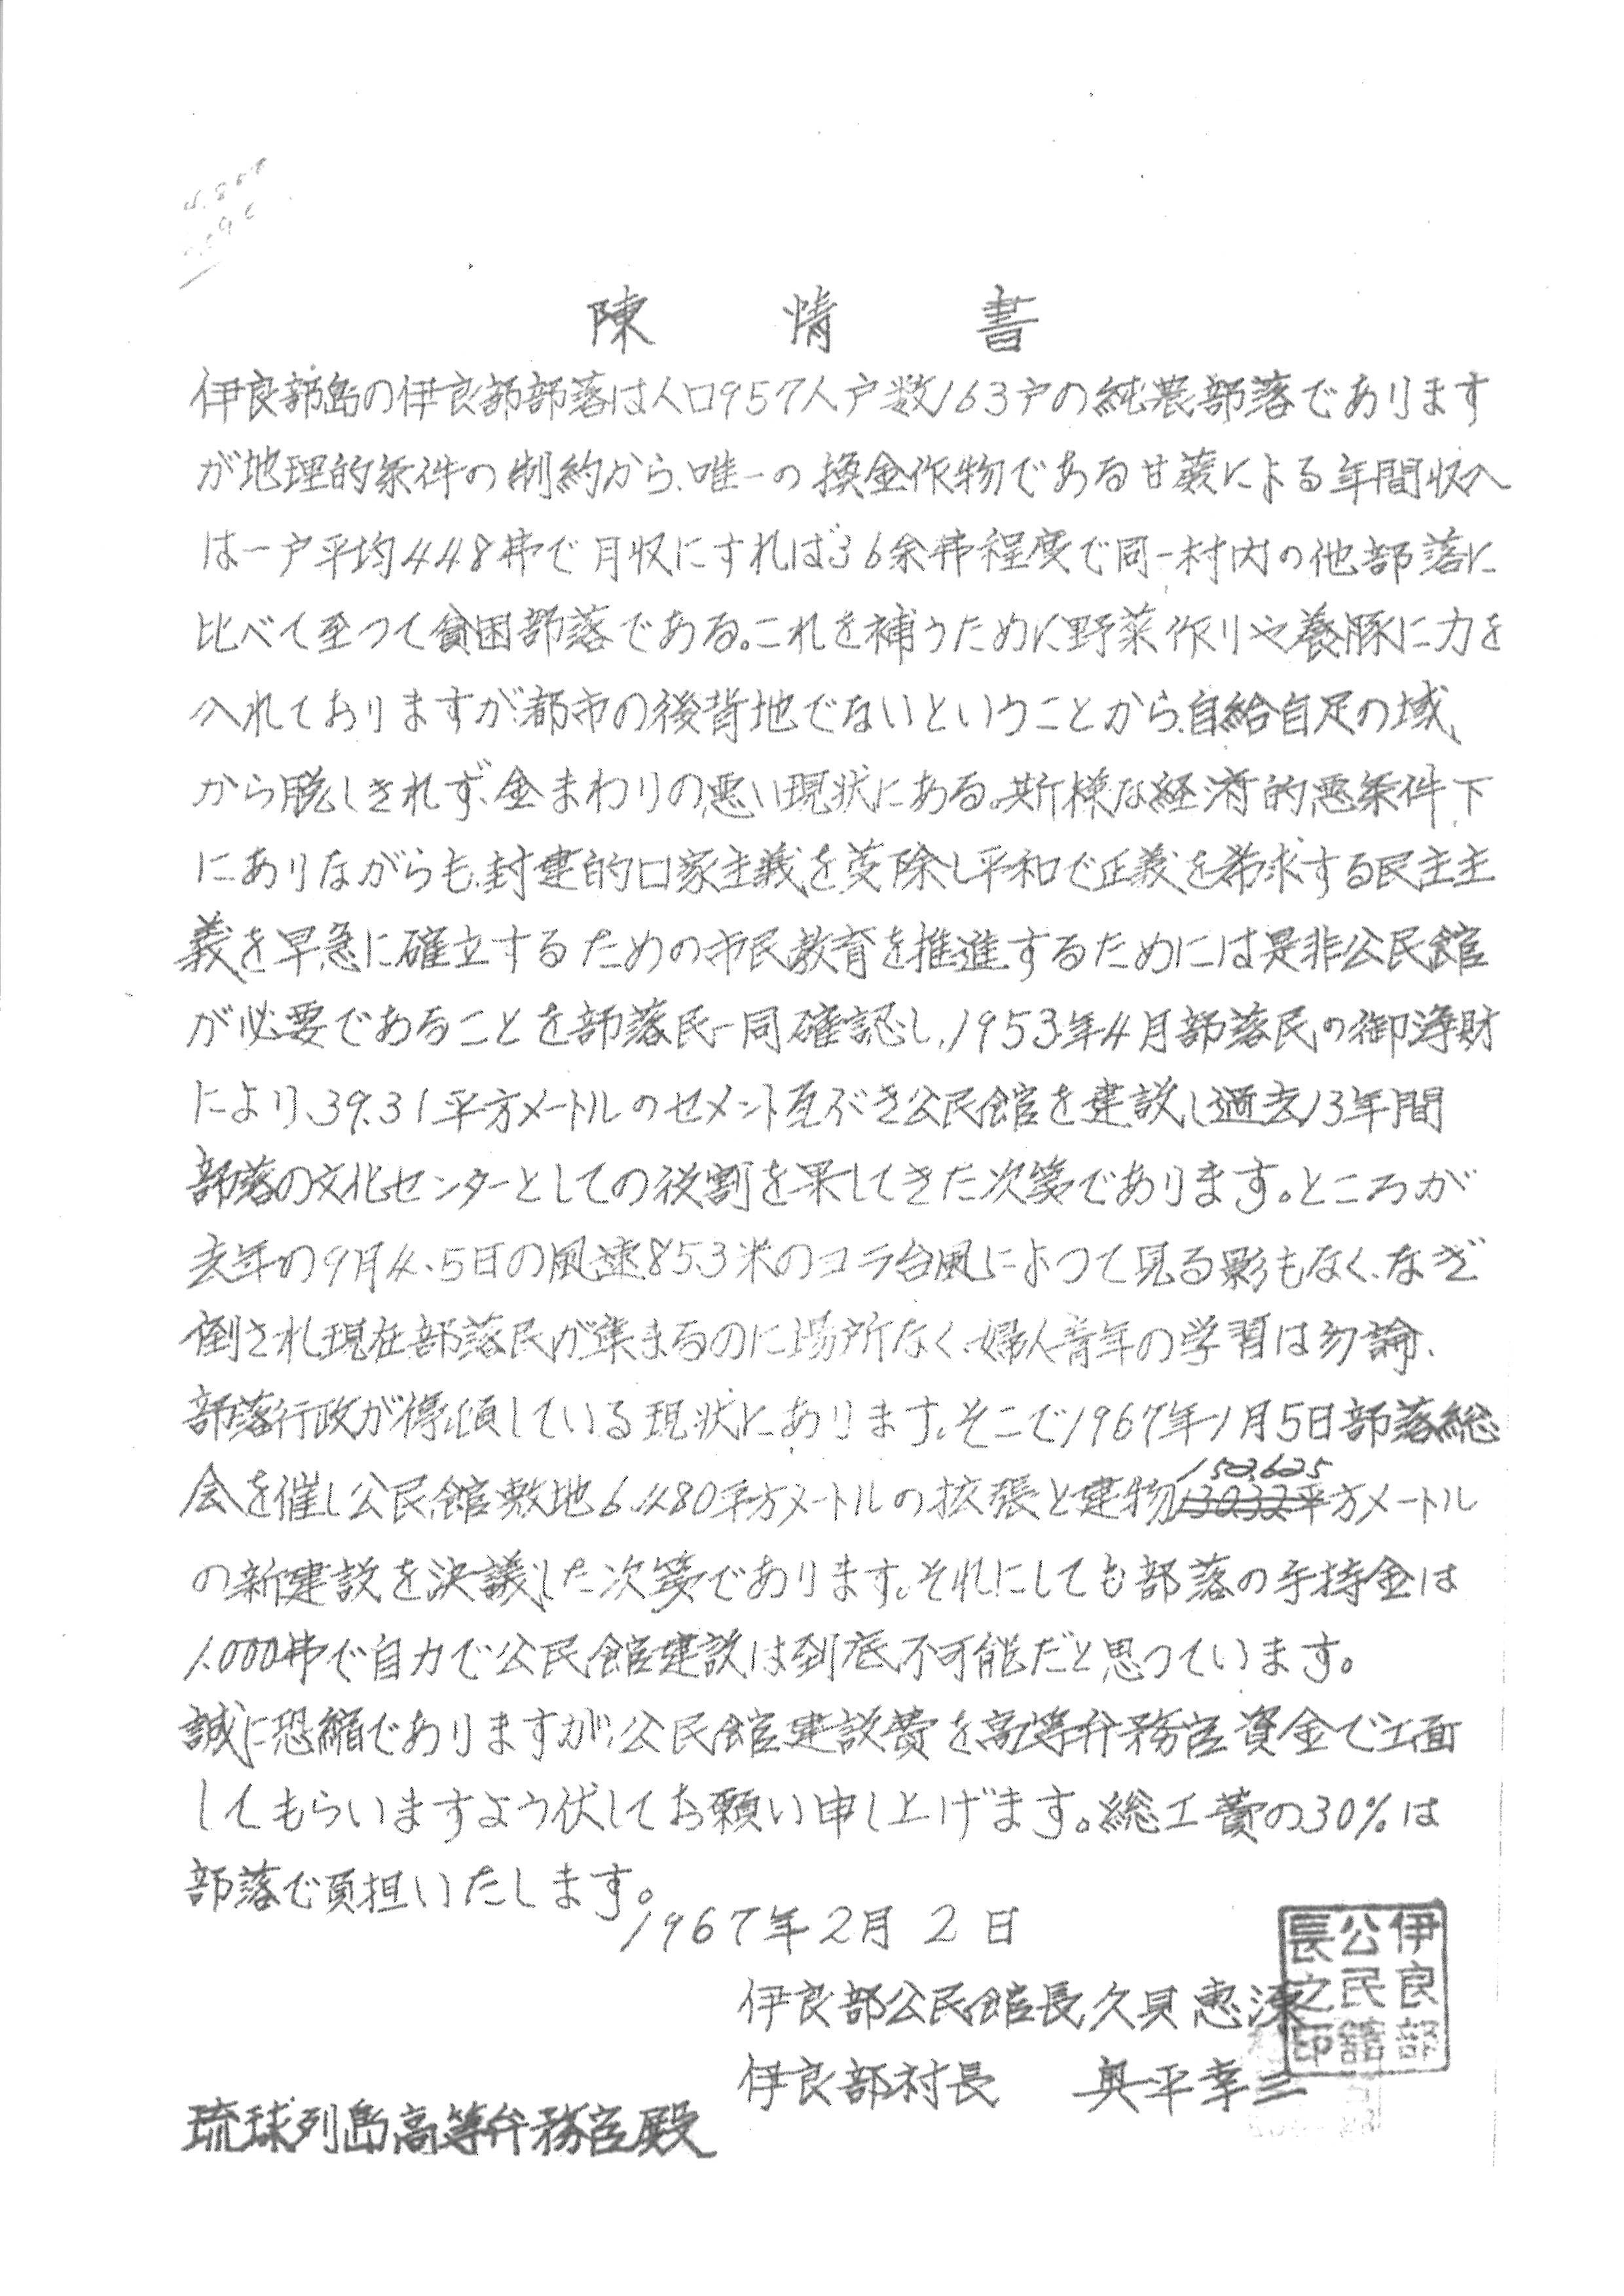 陳情書
伊良部島の伊良部部落は人口957人戸数163戸の純農部落であります
が地理的条件の制約から、唯一の換金作物である甘蔗による年間収入
は一戸平均448弗で月収にすれば36余弗程度で同一村内の他部落に
比べて至つて貧困部落である。これを補うために野菜作りや養豚に力を
入れておりますが、都市の後背地でないということから、自給自足の域
から脱しきれず、金まわりの悪い現状にある。斯様な経済的悪条件下
にありながらも、封建的口家主義を芟除し平和で正義を希求する民主主
義を早急に確立するための市民教育を推進するためには是非公民館
が必要であることを部落民一同確認し、1953年4月部落民の御浄財
により、39.31平方メートルのセメント瓦ぶき公民館を建設し過去13年間
部落の文化センターとしての役割を果してきた次第であります。ところが
去年の9月4、5日の風速85.3米のコラ台風によつて見る影もなく、なぎ
倒され現在部落民が集まるのに場所なく、婦人青年の学習は勿論、
部落行政が停頓している現状にあります。そこで1967年1月5日部落総
152.625
会を催し公民館敷地6.480平方メートルの拡張と建物130.32平方メートル
の新建設を決議した次第であります。それにしても部落の手持金は
1.000弗で自力で公民館建設は到底不可能だと思つています。
誠に恐縮でありますが、公民館建設費を高等弁務官資金で工面
してもらいますよう伏してお願い申し上げます。総工費の30%は
部落で負担いたします。
1967年2月2日
伊良部公民館長 久貝恵
伊良部公民館長之印
伊良部村長 奥平幸三
琉球列島高等弁務官殿